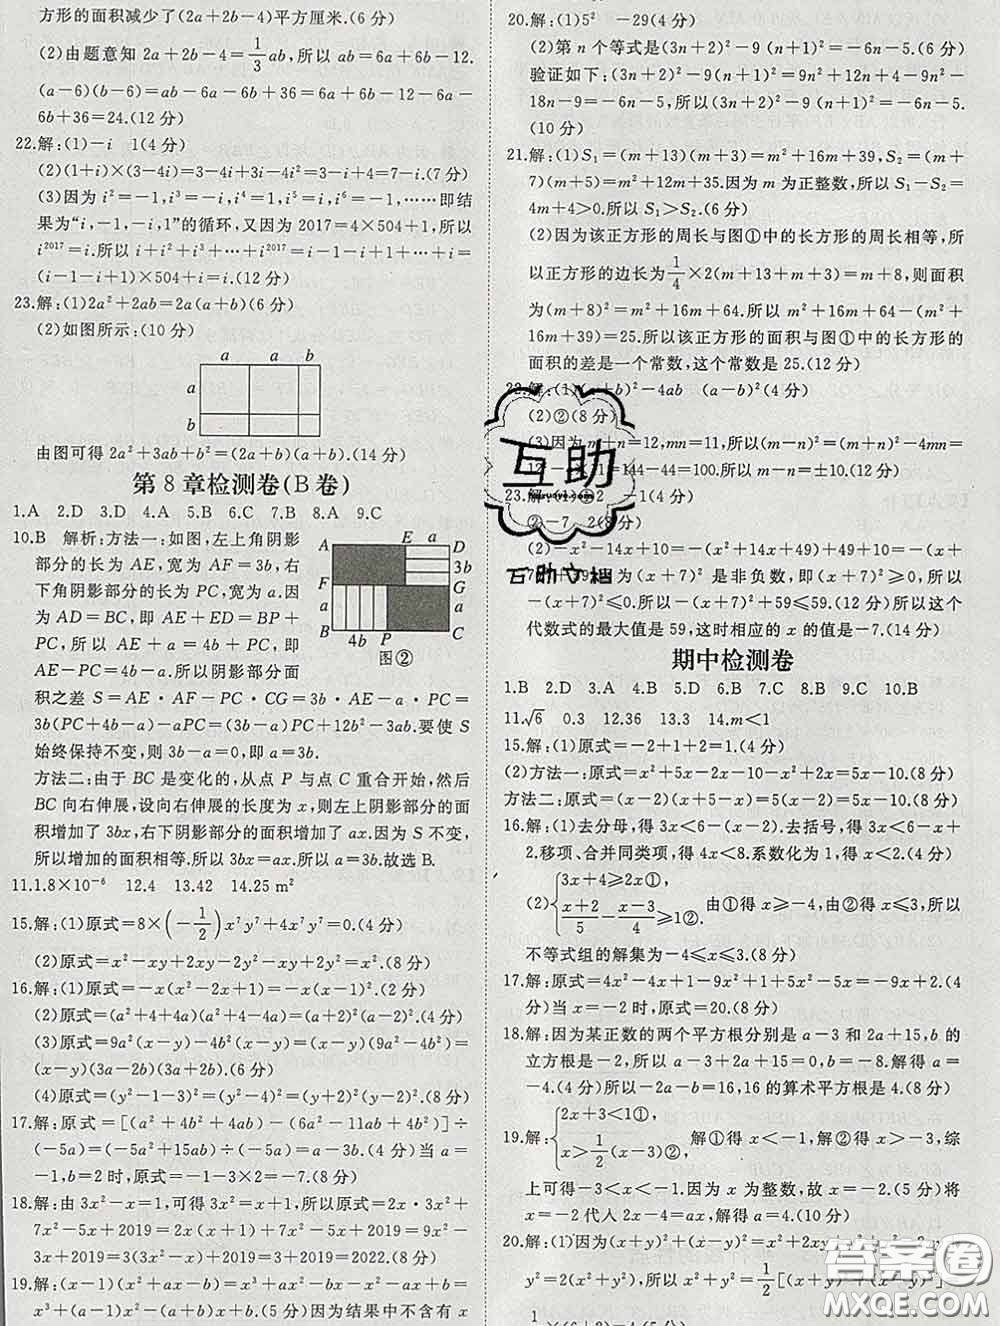 方形的面积减少了(2a+2b-4)平方厘米.(6分)
(2)由题意知 2a+2b-4=1/3ab,所以 ab=6a+6b-12.
(a-6)(b-6)=ab-6a-6b+36=6a+6b-12-6a-
6b+36=24.(12分)
22.解:(1)-i 1(4分)
(2)(1+i)×(3-4i)=3-4i+3i-4i²=3-i+4=7-i.(7分)
(3)因为 i²=-1,i³=-i,i⁴=1,i⁵=i,i⁶=-1,……即结
果为“i,-1,-i,1”的循环,又因为 2017=4×504+1,所以
i²⁰¹⁷=i.所以 i+i²+i³+…+i²⁰¹⁷=i-1-i+1+…+i=
(i-1-i+1)×504+i=i.(12分)
23.解:(1)2a²+2ab=2a(a+b)(6分)
(2)如图所示:(10分)
a a b
a
b
由图可得 2a²+3ab+b²=(2a+b)(a+b).(14分)
第8章检测卷(B卷)
1.A 2.D 3.D 4.A 5.B 6.C 7.B 8.A 9.C
10.B 解析:方法一:如图,左上角阴影
部分的长为 AE,宽为 AF=3b,右
下角阴影部分的长为 PC,宽为 a.因
为 AD=BC,即 AE+ED=BP+
PC,所以 AE+a=4b+PC,即
AE-PC=4b-a.所以阴影部分面
A E a D
3b
F G
a a
B 4b P C
图②
积之差 S=AE·AF-PC·CG=3b·AE-a·PC=
3b(PC+4b-a)-aPC=(3b-a)PC+12b²-3ab.要使 S
始终保持不变,则 3b-a=0,即 a=3b.
方法二:由于 BC 是变化的,从点 P 与点 C 重合开始,然后
BC 向右伸展,设向右伸展的长度为 x,则左上阴影部分的面
积增加了 3bx,右下阴影部分的面积增加了 ax.因为 S 不变,
所以增加的面积相等.所以 3bx=ax.所以 3b=a.故选 B.
11.1.8×10⁻⁶ 12.4 13.42 14.25 m²
15.解:(1)原式=8×(-1/2)x⁷y⁷+4x⁷y⁷=0.(4分)
(2)原式=x²-xy+2xy-2y²-x²-xy=-2y².(8分)
16.解:(1)原式=-x(x²-2x+1)=-x(x-1)².(2分)
(2)原式=(a²+4+4a)(a²+4-4a)=(a+2)²(a-2)².(4分)
(3)原式=9a²(x-y)-4b²(x-y)=(x-y)(9a²-4b²)=
(x-y)(3a-2b)(3a+2b).(6分)
(4)原式=(y²-1-3)²=(y²-4)²=(y+2)²(y-2)².(8分)
17.解:原式=[(4a²+4b²+4ab)-(6a²-11ab+4b²)]÷
(-5a)=(-5a²+15ab)÷(-5a)=a-3b.(4分)当 a=
-1,b=2 时,原式=-1-3×2=-7.(8分)
18.解:由 3x²-x=1,可得 3x²=x+1,所以原式=2x·3x²+
7x²-5x+2019=2x(x+1)+7x²-5x+2019=9x²-
3x+2019=3(3x²-x)+2019=3+2019=2022.(8分)
19.解:(x-1)(x²+ax-b)=x³+ax²-bx-x²-ax+b=
x³+(a-1)x²-(a+b)x+b.(5分)因为结果中不含有 x
20.解:(1)5² -29(4分)
(2)第 n 个等式是(3n+2)²-9(n+1)²=-6n-5.(6分)
验证如下:(3n+2)²-9(n+1)²=9n²+12n+4-9n²-
18n-9=-6n-5,所以(3n+2)²-9(n+1)²=-6n-5.
(10分)
21.解:(1)S₁=(m+13)(m+3)=m²+16m+39,S₂=(m+
7)(m+5)=m²+12m+35.因为 m 为正整数,所以 S₁-S₂=
4m+4>0.所以 S₁>S₂.(6分)
(2)因为该正方形的周长与图①中的长方形的周长相等,所
以正方形的边长为1/4×2(m+13+m+3)=m+8,则面积
为(m+8)²=m²+16m+64.所以 m²+16m+64-(m²+
16m+39)=25.所以该正方形的面积与图①中的长方形的
面积的差是一个常数,这个常数是 25.(12分)
22.解:(1)(a+b)²-4ab (a-b)²(4分)
(2)②(8分)
(3)因为 m+n=12,mn=11,所以(m-n)²=(m+n)²-4mn=
12²-4×11=144-44=100.所以 m-n=±10.(12分)
23.解:(1)①2 -1(4分)
②-7 2(8分)
(2)-x²-14x+10=-(x²+14x+49)+49+10=-(x+
7)²+59.因为(x+7)²是非负数,即(x+7)²≥0,所以
-(x+7)²≤0.所以-(x+7)²+59≤59.(12分)所以这个
代数式的最大值是 59,这时相应的 x 的值是-7.(14分)
互助
互助文档
期中检测卷
1.B 2.D 3.A 4.B 5.D 6.B 7.C 8.B 9.C 10.B
11.√6 0.3 12.36 13.3 14.m<1
15.解:(1)原式=-2+1+2=1.(4分)
(2)方法一:原式=x²+5x-2x-10-x²+2x=5x-10.(8分)
方法二:原式=(x-2)(x+5-x)=5(x-2)=5x-10.(8分)
16.解:(1)去分母,得 3x<6-(x-2).去括号,得 3x<6-x+
2.移项、合并同类项,得 4x<8.系数化为 1,得 x<2.(4分)
(2){3x+4≥2x①, (x+2)/5-(x-3)/4≥1②. 由①得 x≥-4,由②得 x≤3,所以
不等式组的解集为-4≤x≤3.(8分)
17.解:原式=4x²-4x+1-9x²+1+5x²-5x=-9x+2.
(4分)当 x=-2 时,原式=20.(8分)
18.解:因为某正数的两个平方根分别是 a-3 和 2a+15,b 的
立方根是-2,所以 a-3+2a+15=0,b=-8.解得 a=
-4.(4分)所以-2a-b=16,16 的算术平方根是 4.(8分)
19.解:{2x+3<1①, x>1/2(x-3)②. 解①得 x<-1,解②得 x>-3,综
上可得-3<x<-1.因为 x 为整数,故 x=-2.(5分)将
x=-2 代人 2x-4=ax,解得 a=4.(10分)
20.解:(1)因为(x+y)²+(x-y)²=x²+2xy+y²+x²-2xy+
y²=2(x²+y²),所以 x²+y²=1/2[(x+y)²+(x-y)²]
答案圈
MXQE.COM